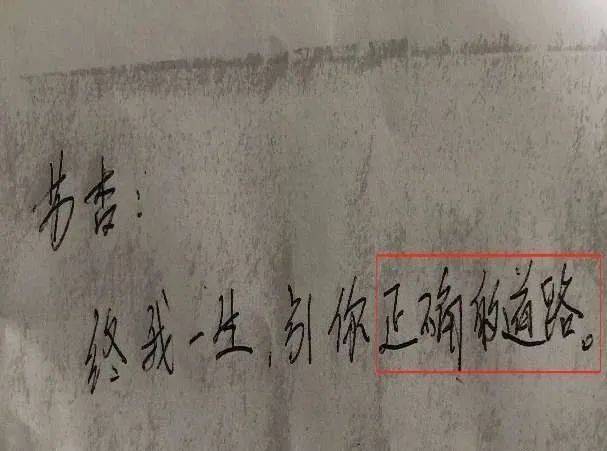 芳杏：
终我一生,引你正确的道路。